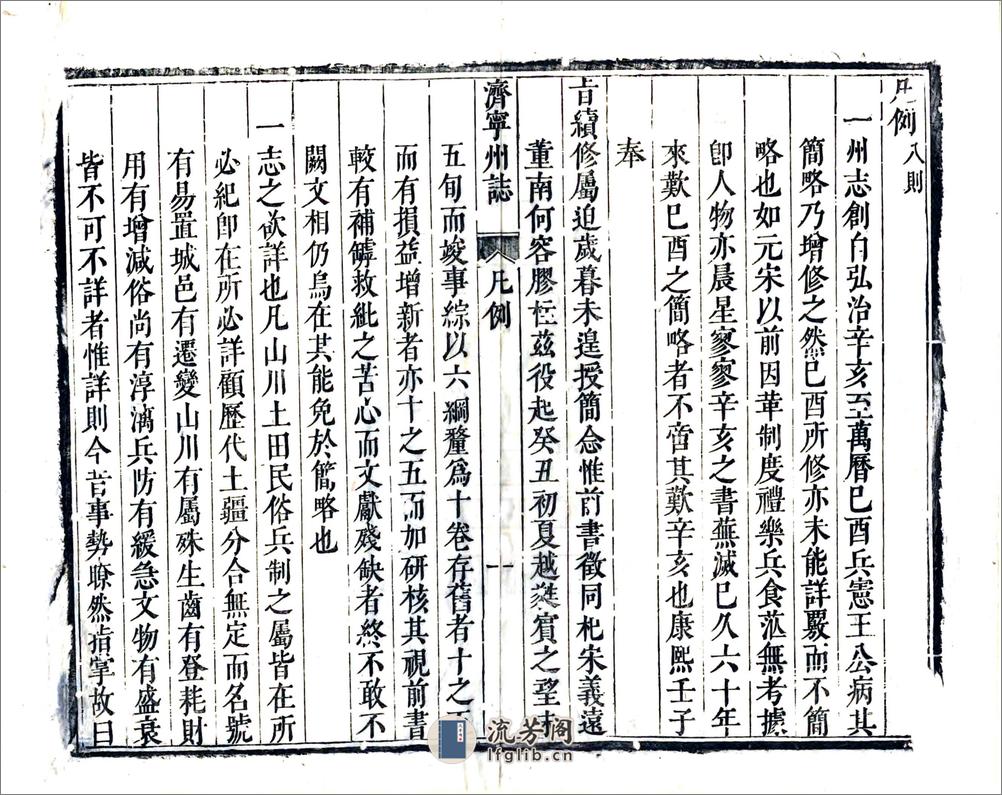 凡例 八則
一州志創自弘治辛亥至萬曆己酉兵憲王公病其
簡略乃增修之然己酉所修亦未能詳覈而不簡
略也如元宋以前因革制度禮樂兵食茫無考據
卽人物亦晨星寥寥辛亥之書蕪滅已久六十年
來歎己酉之簡略者不啻其歎辛亥也康熙壬子
奉
旨續修屬迫歲暮未遑授簡念惟前書徵同杞宋義遠
董南何容膠柱茲役起癸丑初夏越蕤賓之望
濟寧州誌 凡例 一
五旬而竣事綜以六綱釐爲十卷存舊者十之五
而有損益增新者亦十之五而加研核其視前書
較有補罅救紕之苦心而文獻殘缺者終不敢不
闕文相仍烏在其能免於簡略也
一志之欲詳也凡山川土田民俗兵制之屬皆在所
必紀卽在所必詳顧歷代土疆分合無定而名號
有易置城邑有遷變山川有屬殊生齒有登耗財
用有增減俗尚有淳漓兵防有緩急文物有盛衰
皆不可不詳者惟詳則今昔事勢瞭然指掌故曰
流芳阁
lfglib.cn